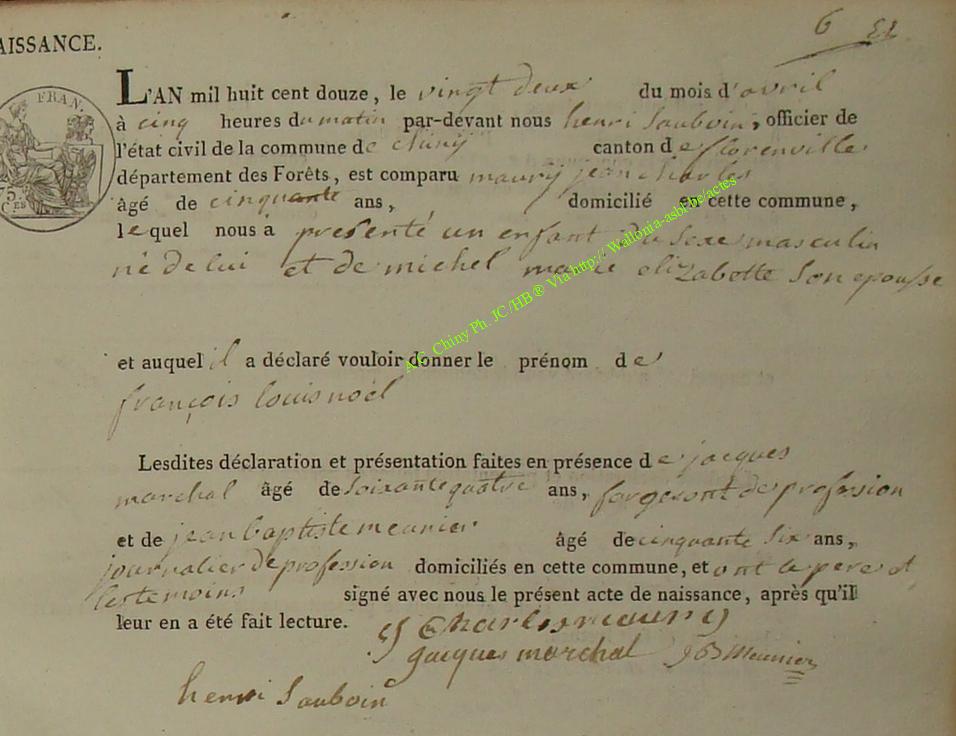 AISSANCE.
6
FRAN.
L'AN mil huit cent douze, le vingt deux du mois d'avril
à cinq heures du matin par-devant nous henri Sauboin, officier de
l'état civil de la commune de chiny canton de florenville
département des Forêts, est comparu maury jean charles
âgé de cinquante ans, domicilié en cette commune,
lequel nous a presenté un enfant du Sexe masculin
né de lui et de michel marie elizabette Son epousse
A.C. Chiny Ph. JC/HB® Via http:// Wallonia-asbl-be/actes
et auquel il a déclaré vouloir donner le prénom de
françois louis noël
Lesdites déclaration et présentation faites en présence de jacques
marchal âgé de soixante quatre ans, forgeront de profession
et de jean baptiste meunier âgé de cinquante six ans,
journalier de profession domiciliés en cette commune, et ont le pere et
les temoins signé avec nous le présent acte de naissance, après qu'il
leur en a été fait lecture.
J Charles maury
jacques marchal JB Meunier
henri Sauboin